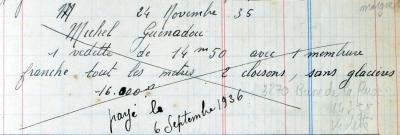 24 Novembre 35
Michel Guénadou
1 vedette de 14 m 50 avec 1 membrure
franche tout les mètres 2 cloisons, sans glacières
16.000
payé le
6 Septembre 1936